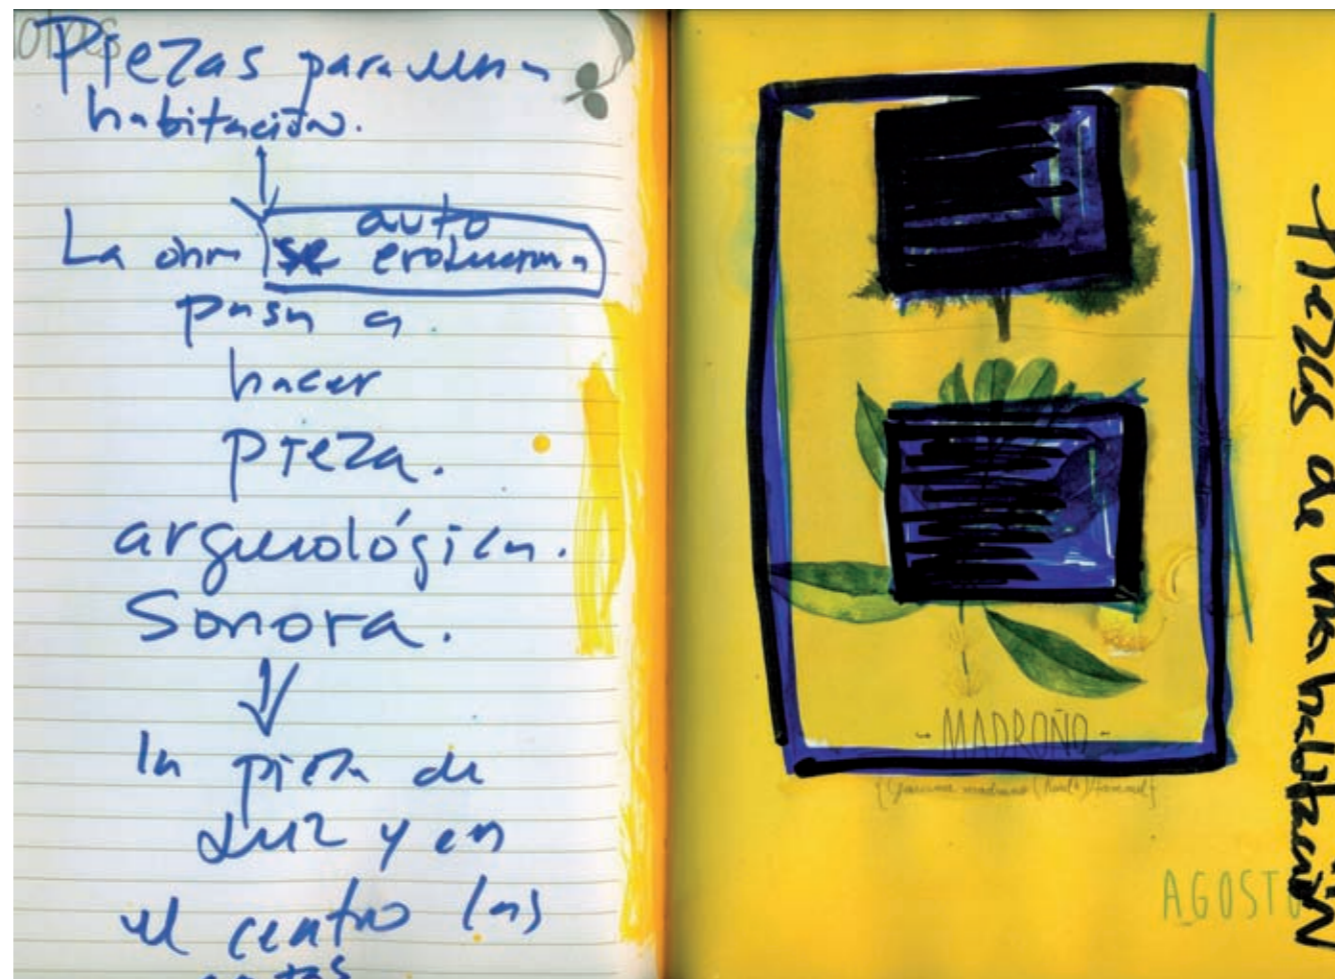 notes
Piezas para una
habitación.
La obra auto
se evoluciona
pasa a
hacer
pieza.
arqueológica.
Sonora.
la pieza de
Luz y en
el centro las
- MADROÑO -
AGOSTO
Piezas de una habitación